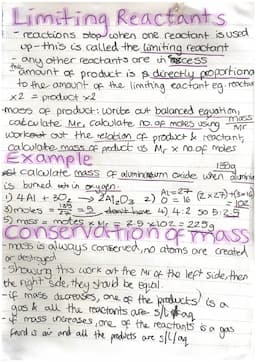 Limiting Reactants
- reactions stop when one reactant is used
up - this is called the limiting reactant
- any other reactants are in excess
the amount of product is directly proportional
to the amount of the limiting reactant eg. reactant
x2 = product x2
- mass of product: write out balanced equation,
calculate Mr, calculate no. of moles using mass/Mr
work out the relation of product & reactant,
calculate mass of product is Mr x no of moles
Example
calculate mass of aluminium oxide when
is burned in oxygen.
1) 4Al + 3O₂ → 2Al₂O₃ 2) Al = 27 O = 16 (2x27)+(3x16)
= 102
3) moles = = 5 4) 4:2 so 5:2.5
5) mass = moles x Mr = 2.5 x 102 = 225g
Conservation of mass
- mass is always conserved, no atoms are created
or destroyed
- showing this work out the Mr of the left side, then
the right side, they should be equal.
- if mass decreases, one of the products is a
gas & all the reactants are s/l/aq
- if mass increases, one of the reactants is a gas
and all the products are s/l/aq